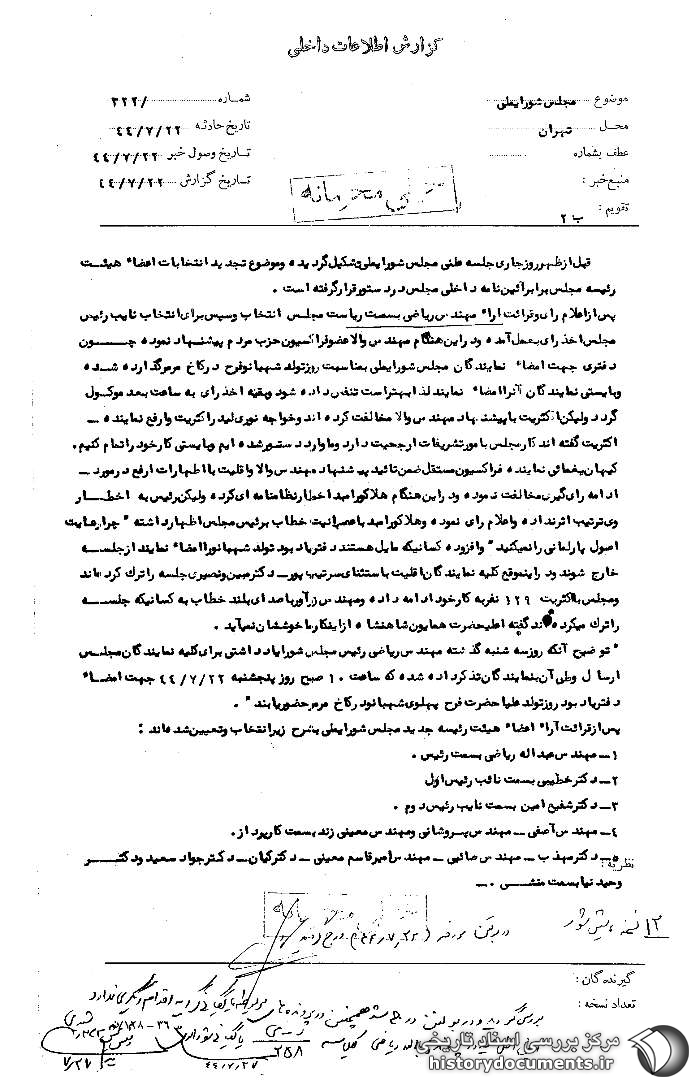 گزارش اطلاعات داخلی
موضوع مجلس شورایملی
شماره /۳۲۲۰
محل تهران
تاریخ حادثه ۴۴/۷/۲۲
عطف بشماره
تاریخ وصول خبر ۴۴/۷/۲۲
منبع خبر :
تاریخ گزارش ۴۴/۷/۲۲
تقویم : ب ۲
خیلی محرمانه
قبل از ظهر روز جاری جلسه علنی مجلس شورایملی تشکیل گردیده و موضوع تجدید انتخابات اعضاء هیئت
رئیسه مجلس برابر آئین نامه داخلی مجلس در دستور قرار گرفته است .
پس از اعلام رای و قرائت آراء مهندس ریاضی بسمت ریاست مجلس انتخاب و سپس برای انتخاب نایب رئیس
مجلس اخذ رای بعمل آمده و در این هنگام مهندس والا عضو فراکسیون حزب مردم پیشنهاد نموده چون
دفتری جهت امضاء نمایندگان مجلس شورایملی بمناسبت روز تولد شهبانو فرح در کاخ مرمر گذارده شده
و بایستی نمایندگان آنرا امضاء نمایند لذا بهتر است تنفس داده شود و بقیه اخذ رای به ساعت بعد موکول
گردد ولیکن اکثریت با پیشنهاد مهندس والا مخالفت کرده اند و خواجه نوری لیدر اکثریت و ارفع نماینده ـ
اکثریت گفته اند کار مجلس بامور تشریفات ارجحیت دارد و ما وارد دستور شده ایم و بایستی کار خود را تمام کنیم .
کیهان یغمائی نماینده فراکسیون مستقل ضمن تائید پیشنهاد مهندس والا و اقلیت با اظهارات ارفع در مورد ـ
ادامه رای گیری مخالفت نموده و در این هنگام هلاکو رامبد اخطار نظامنامه ای کرده ولیکن رئیس به اخطار
وی ترتیب اثر نداده و اعلام رای نموده و هلاکو رامبد با عصبانیت خطاب برئیس مجلس اظهار داشته " چرا رعایت
اصول پارلمانی را نمیکنید " و افزوده کسانیکه مایل هستند دفتر یاد بود تولد شهبانو را امضاء نمایند از جلسه
خارج شوند و در اینموقع کلیه نمایندگان اقلیت باستثنای سرتیپ پور ـ دکتر مبین و نصیری جلسه را ترک کرده اند
و مجلس با اکثریت ۱۲۹ نفر به کار خود ادامه داده و مهندس زرآور با صدای بلند خطاب به کسانیکه جلسه
را ترک میکرده اند گفته اعلیحضرت همایون شاهنشاه از اینکارها خوششان نمیآید .
" توضیح آنکه روز سه شنبه گذشته مهندس ریاضی رئیس مجلس شورا یادداشتی برای کلیه نمایندگان مجلس
ارسال و طی آن بنمایندگان تذکر داده شده که ساعت ۱۰ صبح روز پنجشنبه ۴۴/۷/۲۲ جهت امضاء
دفتر یاد بود روز تولد علیا حضرت فرح پهلوی شهبانو در کاخ مرمر حضور یابند " .
پس از قرائت آراء اعضاء هیئت رئیسه جدید مجلس شورایملی بشرح زیر انتخاب و تعیین شده اند :
۱ـ مهندس عبداله ریاضی بسمت رئیس .
۲ـ دکتر خطیبی بسمت نائب رئیس اول
۳ـ دکتر شفیع امین بسمت نایب رئیس دوم .
۴ـ مهندس آصفی ـ مهندس بروشانی و مهندس معینی زند بسمت کارپرداز .
۵ـ دکتر مهذب ـ مهندس صائبی ـ مهندس امیر قاسم معینی ـ دکتر کیان ـ دکتر جواد سعید و دکتر
نظریه :
وحید نیا بسمت منشی . ـ
گیرندگان :
تعداد نسخه :
۲۵۸
۴۴/۷/۲۷
۷/۲۷
مرکز بررسی اسناد تاریخی
historydocuments.ir